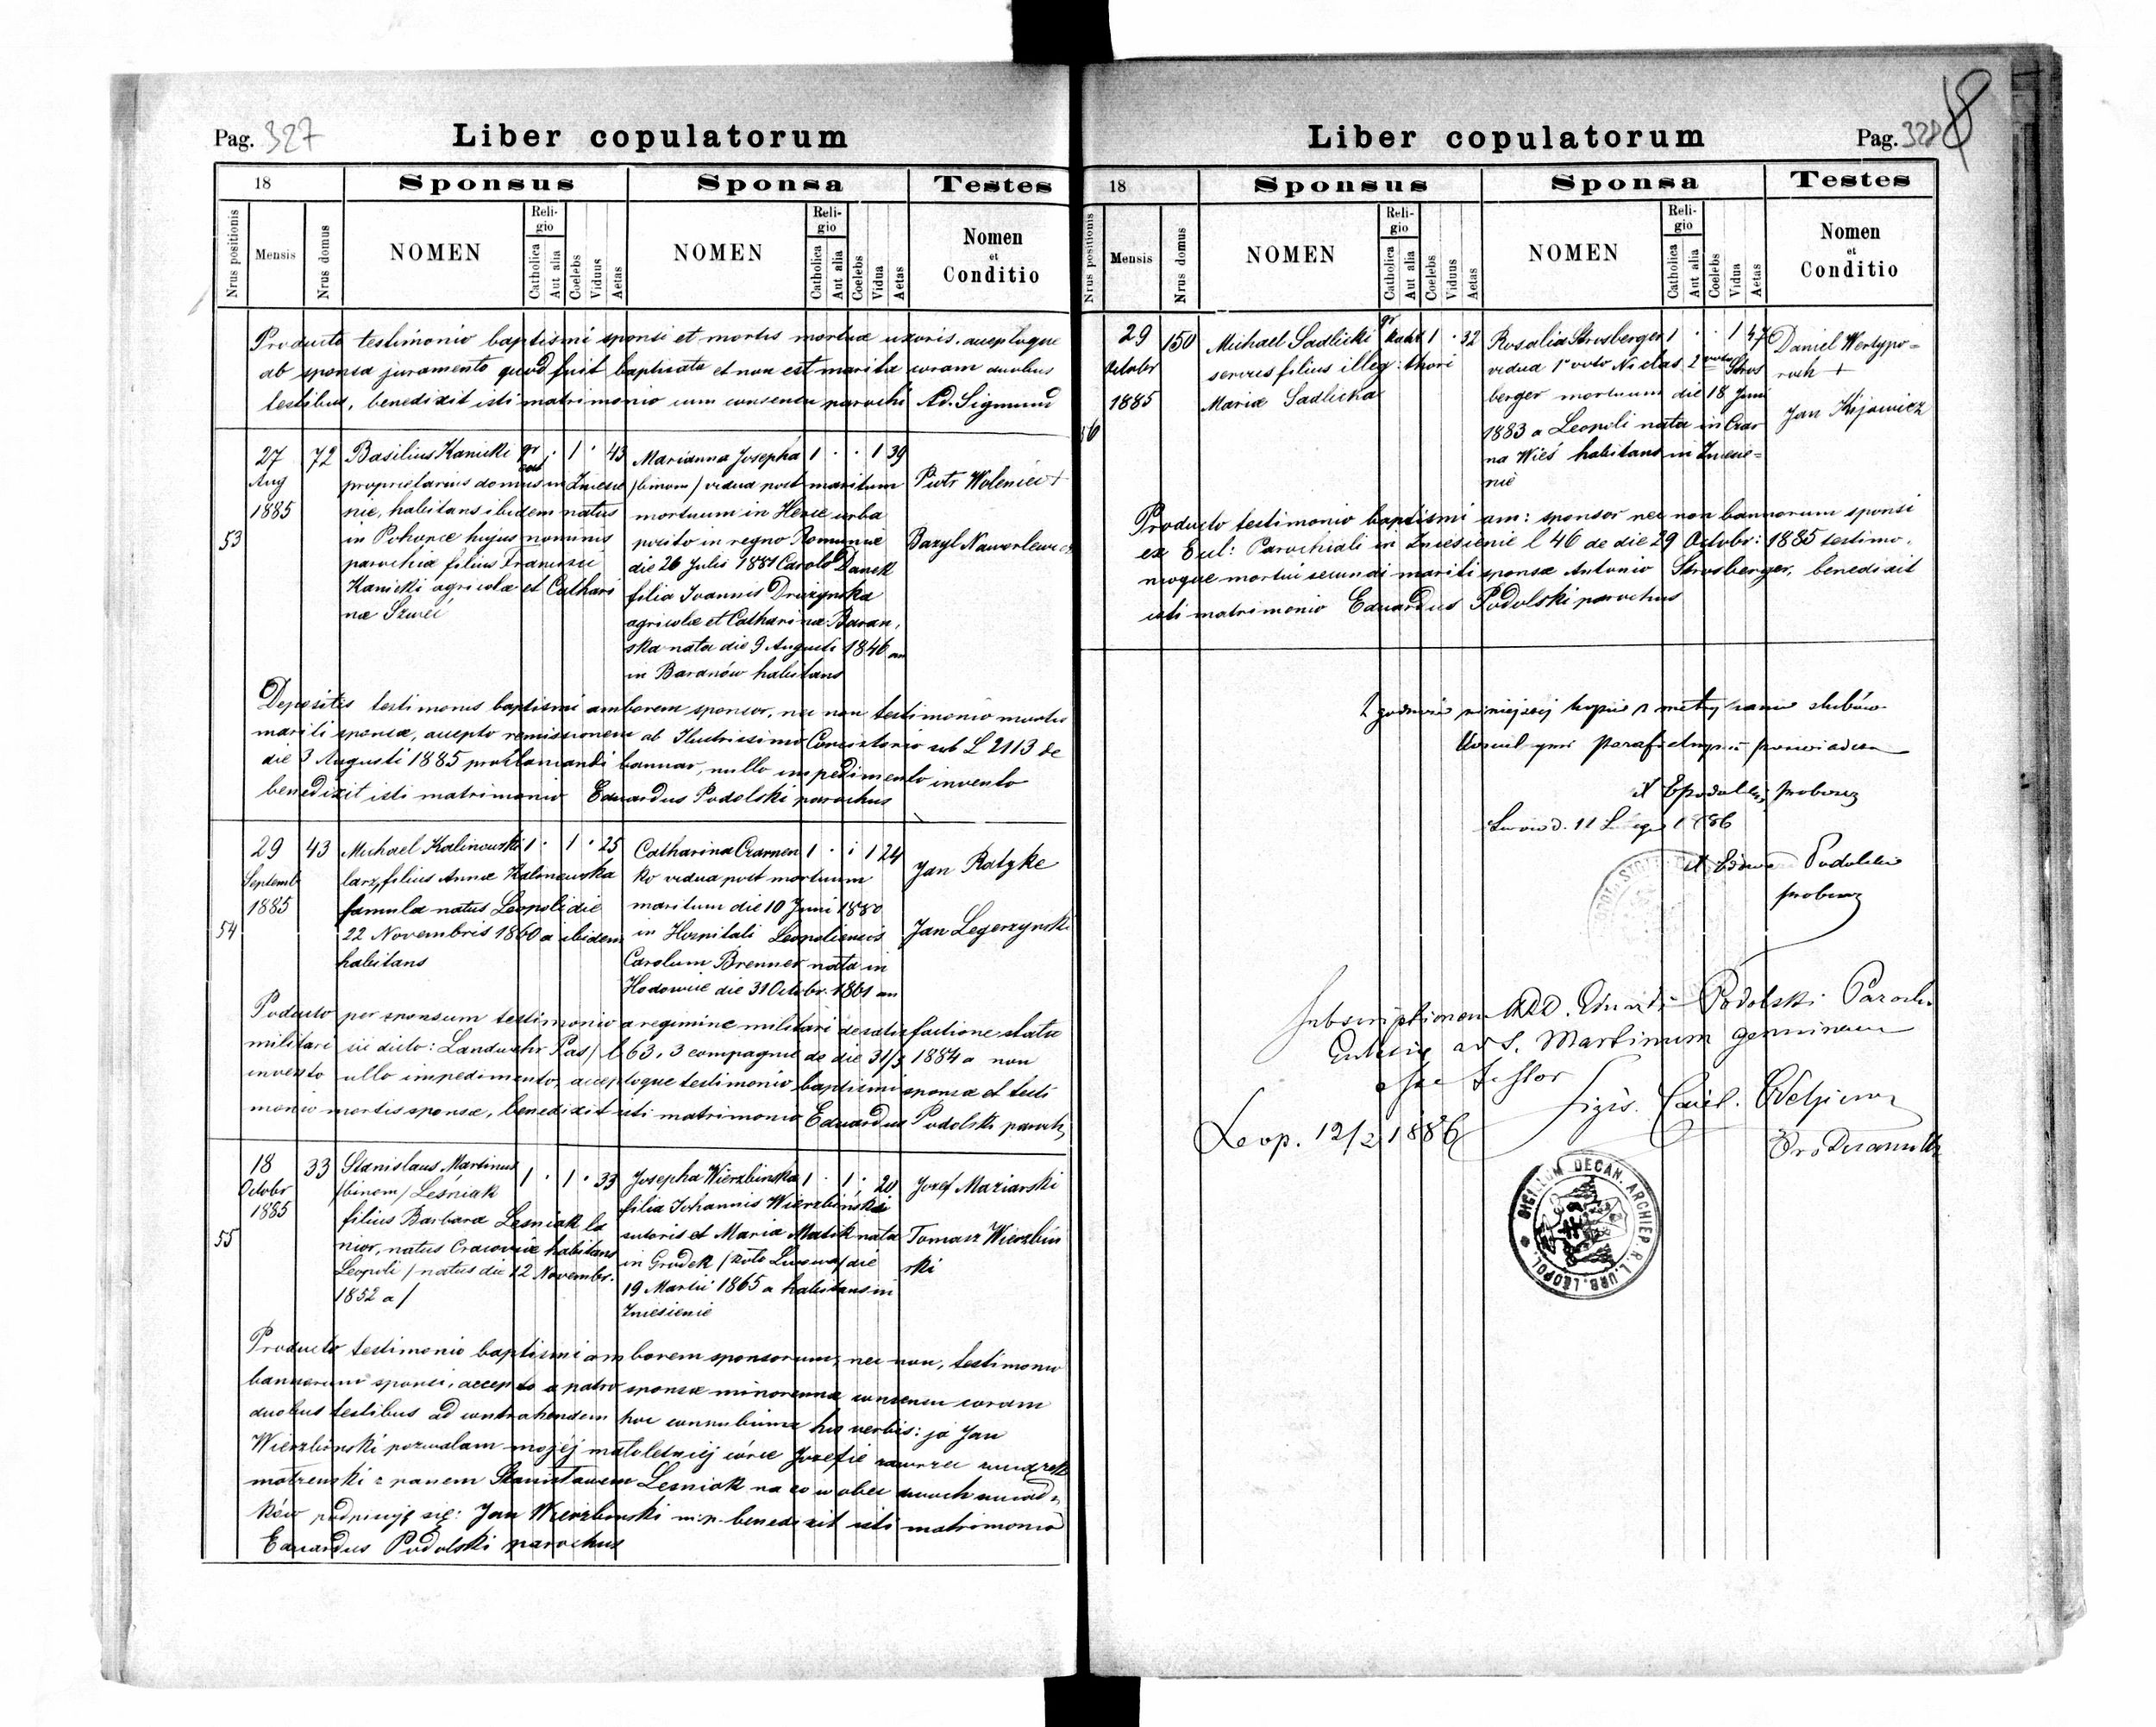 Pag. 327
Liber copulatorum
18
Sponsus
Sponsa
Testes
Nrus positionis
Mensis
Nrus domus
NOMEN
Religio
Catholica
Aut alia
Coelebs
Viduus
Aetas
NOMEN
Religio
Catholica
Aut alia
Coelebs
Vidua
Aetas
Nomen
et
Conditio
Producto testimonio baptismi sponsi et mortis mortuæ uxoris, acceptoque
ab sponsa juramento quod fuit baptisata et non est marita coram duobus
testibus, benedixit isti matrimonio cum consensu parochi Ad. Sigmund
53
27
Aug
1885
72
Basilius Kanicki
proprietarius domus in Zniesie
nie, habitans ibidem natus
in Pohorce hujus nominis
parochiæ filius Francisci
Kanicki agricolæ et Cathari
næ Szweć
gr. cat
1 43
Marianna Josepha
/binom/ vidua post maritum
mortuum in Herce urba
posito in regno Romuniæ
die 26 Julii 1881 Carolo Danek
filia Joannis Drużynska
agricolæ et Catharina Baran
ska nata die 9 Augusti 1846 an
in Baranów habitans
1 1 39
Piotr Woleniec +
Bazyl Nawerlewicz
Depositis testimoniis baptismi amborem sponsor, nec non testimonio mortis
mariti sponsæ, accepto remissionem ab Illustrissimo Concistorio sub L 2113 de
die 3 Augusti 1885 proklamandi bannar, nullo impedimento invento
benedixit isti matrimonio Eduardus Podolski parochus
54
29
Septemb
1885
43
Michael Kalinowski
larz, filius Annæ Kalinowska
famula natus Leopoli die
22 Novembris 1860 a ibidem
habitans
1 1 25
Catharina Czarnen
ko vidua post mortuum
maritum die 10 Juni 1880
in Hospitali Leopoliensis
Carolum Brenner nata in
Hodowice die 31 Octobr. 1861 an
1 1 24
Jan Ratzke
Jan Legerzynski
Poducto per sponsum testimonio a regimine militari de satisfactione statu
militari sic dicto: Landwehr Pas/ l 63, 3 compagnie de die 31/3 1884 a non
invento ullo impedimento, acceptoque testimonio baptismi sponsæ et testi
monio mortis sponsæ, benedixit isti matrimonio Eduardus Podolski paroch,
55
18
Octobr
1885
33
Stanislaus Martinus
/binom/ Leśniak
filius Barbara Lesniak la
nior, natus Cracoviæ habitans
Leopoli / natus die 12 Novembr.
1852 a/
1 1 33
Josepha Wierzbinska
filia Johannis Wierzbinski
sutoris et Maria Matik nata
in Grodek / koło Lwowa/ die
19 Martii 1865 a habitans in
Zniesienie
1 1 20
Jozef Maziarski
Tomasz Wierzbin
ski
Producto testimonio baptismi amborem sponsorum, nec non, testimonio
bannorum sponsi, accepto a patro sponsæ minorenna consensu coram
duobus testibus ad contrahendem hoc connubium his verbis: ja Jan
Wierzbinski pozwalam mojéj małoletniéj córce Jozefie zawrzec związek
małżenski z panem Stanisławem Lesniak na co w obec dwoch swiad
ków podpisuję się: Jan Wierzbinski m.p. benedixit isti matrimonio
Eduardus Podolski parochus
Liber copulatorum
Pag. 328
18
Sponsus
Sponsa
Testes
Nrus positionis
Mensis
Nrus domus
NOMEN
Religio
Catholica
Aut alia
Coelebs
Viduus
Aetas
NOMEN
Religio
Catholica
Aut alia
Coelebs
Vidua
Aetas
Nomen
et
Conditio
56
29
Octobr
1885
150
Michael Sadlicki
servus filius illeg: thori
Mariæ Sadlicka
gr
kath 1 32
Rosalia Strosberger
vidua 1º voto Niclas 2 voto Stros
berger mortuum die 18 Juni
1883 a Leopoli nata in Czar
na Wieś habitans in Zniesie=
nie
1 1 47
Daniel Wertypo=
roch +
Jan Kijowicz
Producto testimonio baptismi am: sponsor nec non bannorum sponsi
ex Eccl: Parochiali in Zniesienie l 46 de die 29 Octobr: 1885 testimo,
nioque mortui secundi mariti sponsæ Antonio Strosberger, benedixit
isti matrimonio Eduardus Podolski parochus
Zgodność niniejszej kopii z metrykami slubów
X Epodolski, proboszcz
Lwów d. 11 Lutego 1886
X Edw Podolski
proboszcz
Subscriptionem ADD. Eduardi Podolski Parochi
Ecclesiæ ad S. Martinum genuinam
esse testor
Leop. 12/2 1886
SIGILLUM DECAN. ARCHIEP. R. L. URB. LEOPOL.